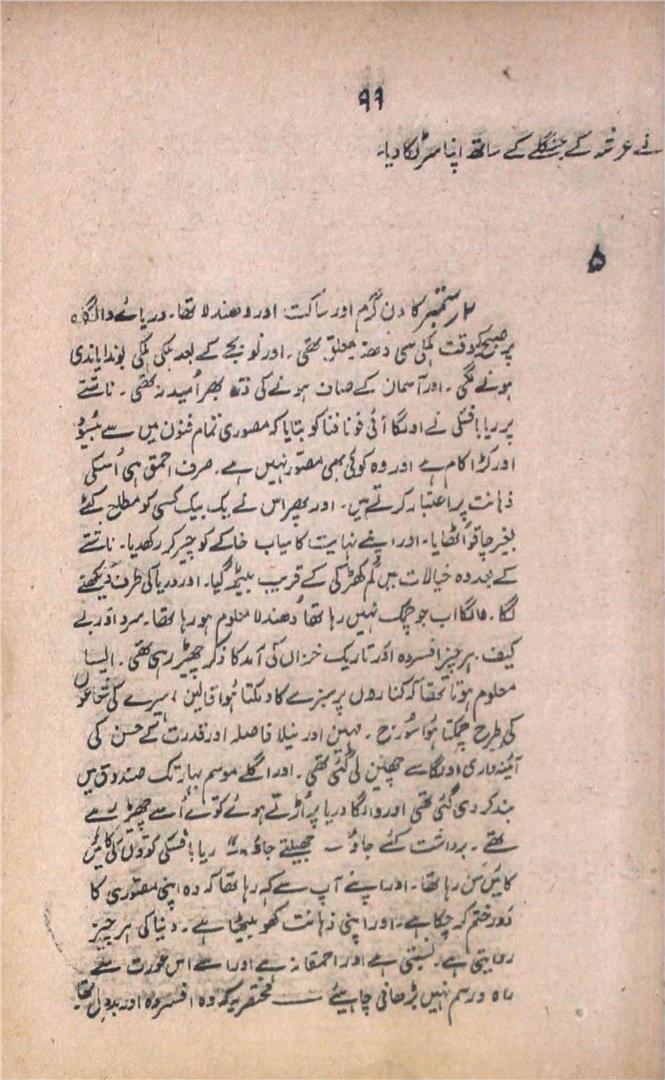 ۹۹
نے عرشہ کے جنگلے کے ساتھ اپنا سر لگا دیا۔
۵
۲ ستمبر کا دن گرم اور ساکت اور دھندلا تھا۔ دریائے والگا
پر صبح کے وقت ہلکی سی دھند معلق تھی۔ اور نو بجے کے بعد ہلکی ہلکی بوندا باندی
ہونے لگی۔ اور آسمان کے صاف ہونے کی ذرہ بھر اُمید نہ تھی۔ ناشتے
پر ریابافسکی نے اولگا آئی فونافنا کو بتایا کہ مصوری تمام فنون میں سے بیہودہ
اور کڑا کام ہے اور وہ کوئی بھی مصور نہیں ہے۔ صرف احمق ہی اُسکی
ذہانت پر اعتبار کرتے ہیں۔ اور پھر اس نے یک بیک کسی کو مطلع کئے
بغیر چاقو اُٹھایا۔ اور اپنے نہایت کامیاب خاکے کو چیر کر رکھدیا۔ ناشتے
کے بعد وہ خیالات میں گم کھڑکی کے قریب بیٹھ گیا۔ اور دریا کی طرف دیکھنے
لگا۔ والگا اب جو چمک نہیں رہا تھا دُھندلا معلوم ہو رہا تھا۔ سرد اور بے
کیف۔ ہر چیز افسردہ اور تاریک خزاں کی آمد کا ذکر چھیڑ رہی تھی۔ ایسا
معلوم ہوتا تھا کہ کناروں پر سبزے کا دمکتا ہوا قالین، ہیرے کی شعاعوں
کی طرح چمکتا ہوا سورج۔ مہین اور نیلا فاصلہ اور قدرت کے حسن کی
آئینہ داری اولگا سے چھین لی گئی تھی۔ اور اگلے موسم بہار تک صندوق میں
بند کر دی گئی تھی اور والگا دریا پر اُڑتے ہوئے کوے اُسے چھیڑ رہے
تھے۔ برداشت کئے جاؤ۔ جھیلتے جاؤ۔" ریابافسکی کوؤں کی کائیں
کائیں سن رہا تھا۔ اور اپنے آپ سے کہہ رہا تھا کہ وہ اپنی مصوری کا
دور ختم کر چکا ہے۔ اور اپنی ذہانت کھو بیٹھا ہے۔ دنیا کی ہر چیز
روایتی ہے۔ نسبتی ہے اور احمقانہ ہے اور اسے اس عورت سے
راہ و رسم نہیں بڑھانی چاہیئے — مختصر یہ کہ وہ افسردہ اور بددل تھا۔